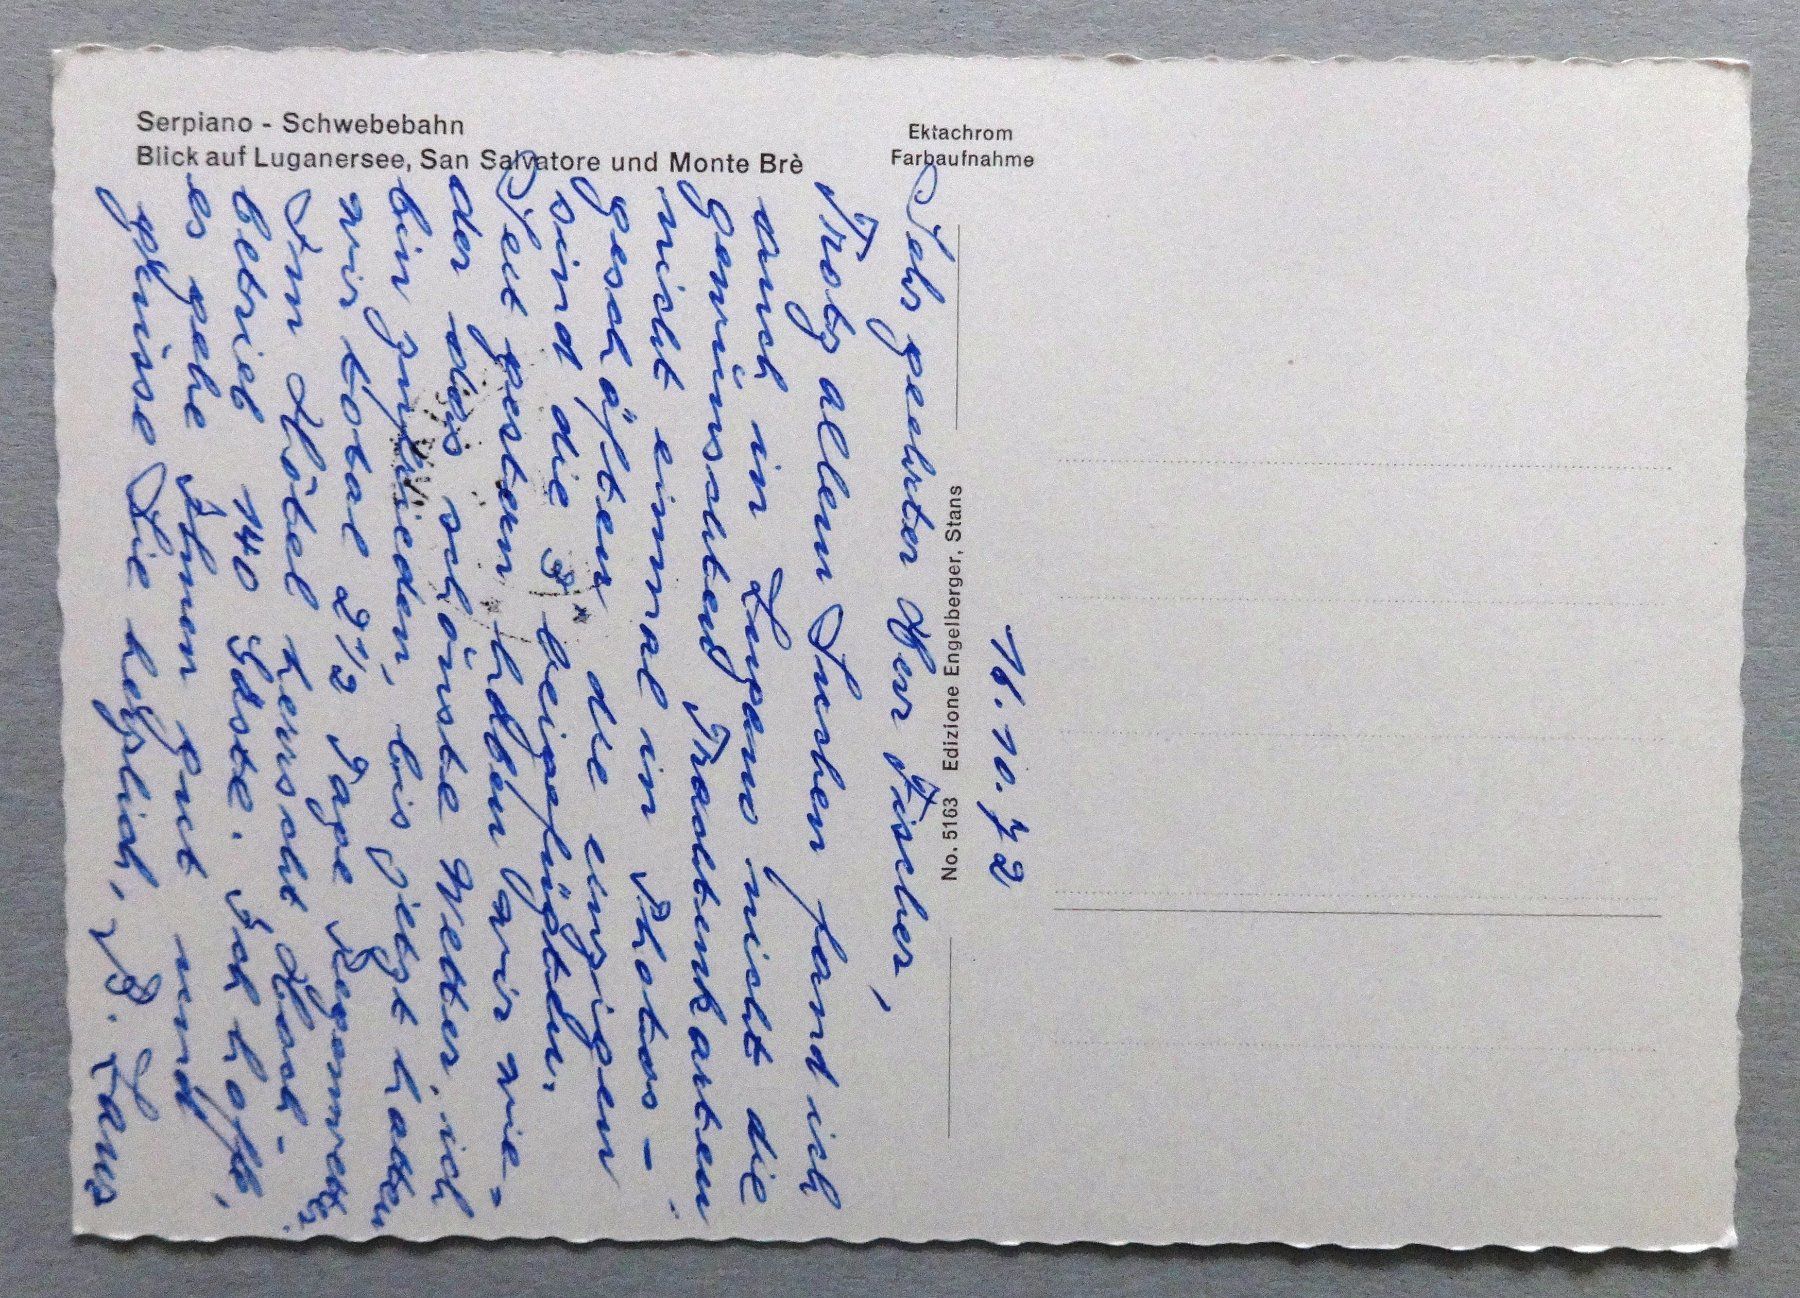 Serpiano - Schwebebahn
Blick auf Luganersee, San Salvatore und Monte Brè
Ektachrom
Farbaufnahme
No. 5163 Edizione Engelberger, Stans
16.10.72
Sehr geehrter Herr Fischer,
Trotz allem Suchen fand ich
auch in Lugano nicht die
gewünschten Trachtenkarten
nicht einmal in Photos-
geschäften, die einzigen
sind die 3 beigefügten.
Seit gestern haben wir wie-
der das schönste Wetter, ich
bin zufrieden, bis jetzt hatten
wir total 2 1/2 Tage Regenwetter.
Im Hôtel herrscht Hoch-
betrieb 140 Gäste. Ich hoffe,
es gehe Ihnen gut und
grüsse Sie herzlich,